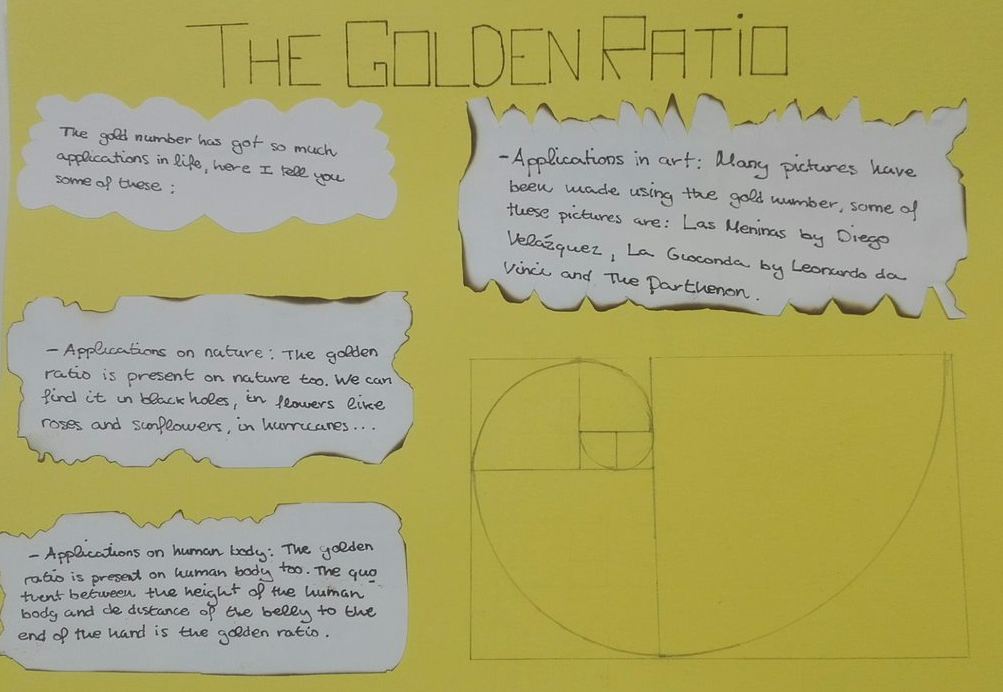 THE GOLDEN RATIO
The gold number has got so much
applications in life, here I tell you
some of these :
- Applications on nature : The golden
ratio is present on nature too. We can
find it in black holes, in flowers like
roses and sunflowers, in hurricanes...
- Applications on human body: The golden
ratio is present on human body too. The quo
tient between the height of the human
body and de distance of the belly to the
end of the hand is the golden ratio.
- Applications in art: Many pictures have
been made using the gold number, some of
these pictures are: Las Meninas by Diego
Velázquez, La Gioconda by Leonardo da
Vinci and The Parthenon.